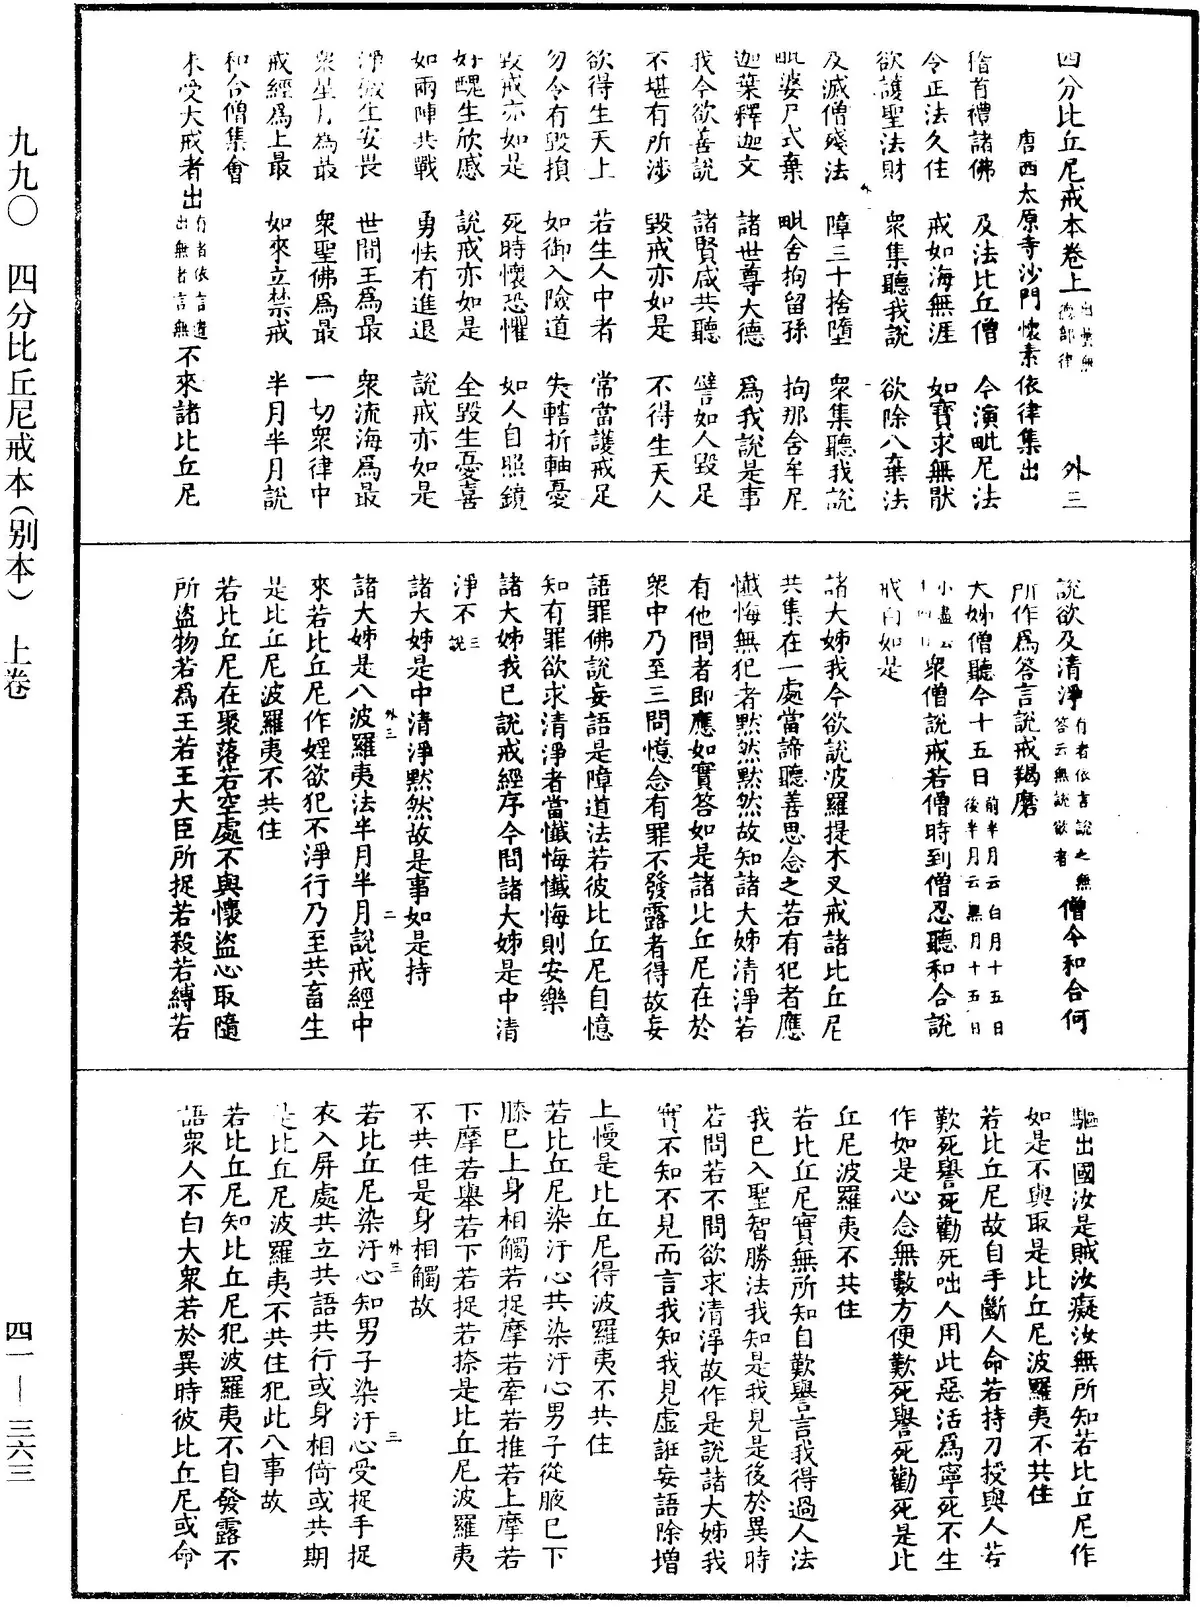 四分比丘尼戒本卷上 外三
唐西太原寺沙門懷素依律集出
稽首禮諸佛 及法比丘僧 今演毗尼法
令正法久住 戒如海無涯 如寶求無猒
欲護聖法財 衆集聽我說 欲除八棄法
及滅僧殘法 障三十捨墮 衆集聽我說
毗婆尸式棄 毗舍拘留孫 拘那舍牟尼
迦葉釋迦文 諸世尊大德 爲我說是事
我今欲善說 諸賢咸共聽 譬如人毀足
不堪有所涉 毀戒亦如是 不得生天人
欲得生天上 若生人中者 常當護戒足
勿令有毀損 如御入險道 失轄折軸憂
毀戒亦如是 死時懷恐懼 如人自照鏡
好醜生欣慼 說戒亦如是 全毀生憂喜
如兩陣共戰 勇怯有進退 說戒亦如是
淨穢生安畏 世間王爲最 衆流海爲最
衆星月爲最 衆聖佛爲最 一切衆律中
戒經爲上最 如來立禁戒 半月半月說
和合僧集會
未受大戒者出有者依言遣出無者言無不來諸比丘尼
說欲及清淨有者依言說之無答云無說欲者僧今和合何
所作爲答言說戒羯磨
大姊僧聽今十五日前半月云白月十五日後半月云黑月十五日
小盡云十四日衆僧說戒若僧時到僧忍聽和合說
戒白如是
諸大姊我今欲說波羅提木叉戒諸比丘尼
共集在一處當諦聽善思念之若有犯者應
懺悔無犯者默然默然故知諸大姊清淨若
有他問者即應如實答如是諸比丘尼在於
衆中乃至三問憶念有罪不發露者得故妄
語罪佛說妄語是障道法若彼比丘尼自憶
知有罪欲求清淨者當懺悔懺悔則安樂
諸大姊我已說戒經序今問諸大姊是中清
淨不三說
諸大姊是中清淨默然故是事如是持
諸大姊是八波羅夷法半月半月說戒經中
來若比丘尼作婬欲犯不淨行乃至共畜生
是比丘尼波羅夷不共住
若比丘尼在聚落若空處不與懷盜心取隨
所盜物若爲王若王大臣所捉若殺若縛若
驅出國汝是賊汝癡汝無所知若比丘尼作
如是不與取是比丘尼波羅夷不共住
若比丘尼故自手斷人命若持刀授與人若
歎死譽死勸死咄人用此惡活爲寧死不生
作如是心念無數方便歎死譽死勸死是比
丘尼波羅夷不共住
若比丘尼實無所知自歎譽言我得過人法
我已入聖智勝法我知是我見是後於異時
若問若不問欲求清淨故作是說諸大姊我
實不知不見而言我知我見虛誑妄語除增
上慢是比丘尼得波羅夷不共住
若比丘尼染汙心共染汙心男子從腋已下
膝已上身相觸若捉摩若牽若推若上摩若
下摩若舉若下若捉若捺是比丘尼波羅夷
不共住是身相觸故
若比丘尼染汙心知男子染汙心受捉手捉
衣入屏處共立共語共行或身相倚或共期
是比丘尼波羅夷不共住犯此八事故
若比丘尼知比丘尼犯波羅夷不自發露不
語衆人不白大衆若於異時彼比丘尼或命
九九〇 四分比丘尼戒本(别本) 上卷
四一—三六三